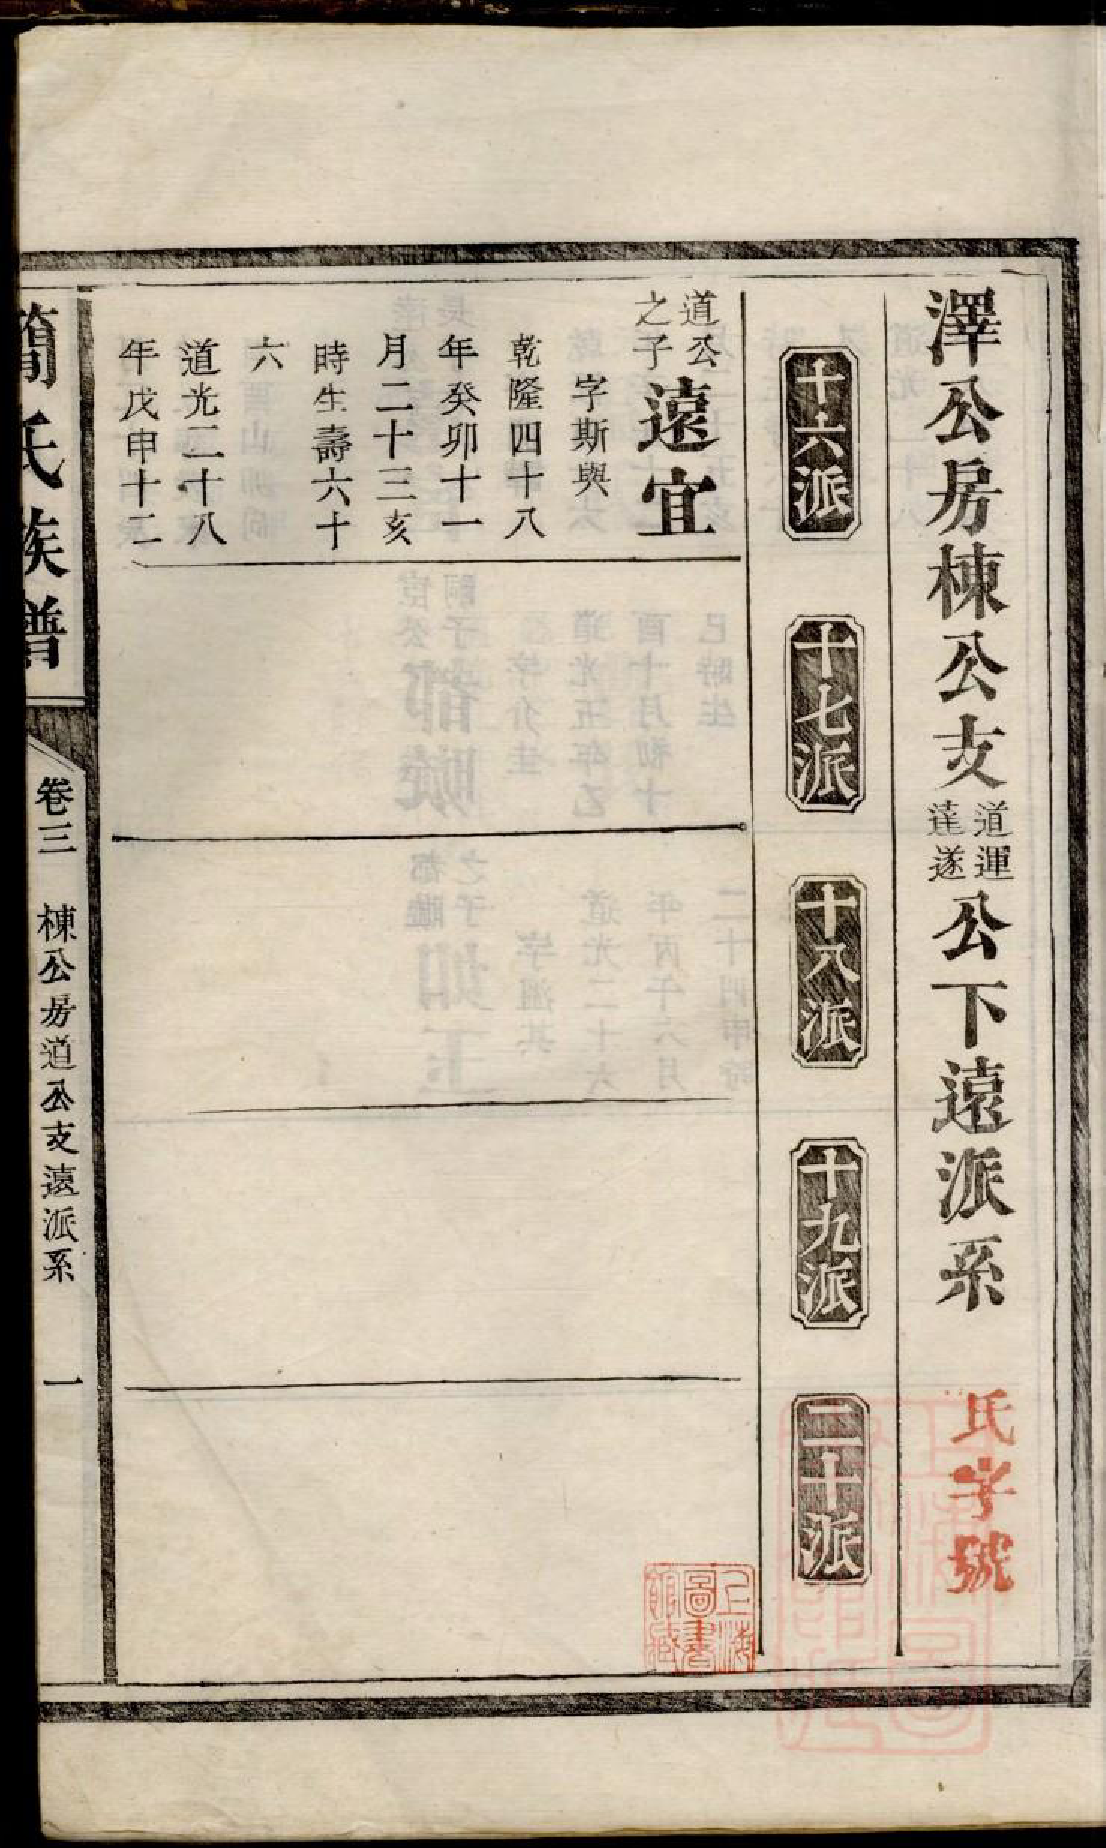 澤公房棟公支道運達遂公下遠派系
氏字號
十六派
十七派
十八派
十九派
二十派
道公
之子
遠宜
字斯與
乾隆四十八
年癸卯十一
月二十三亥
時生壽六十
六
道光二十八
年戊申十二
簡氏族譜
卷三 棟公房道公支遠派系 一
上海
圖書
館藏